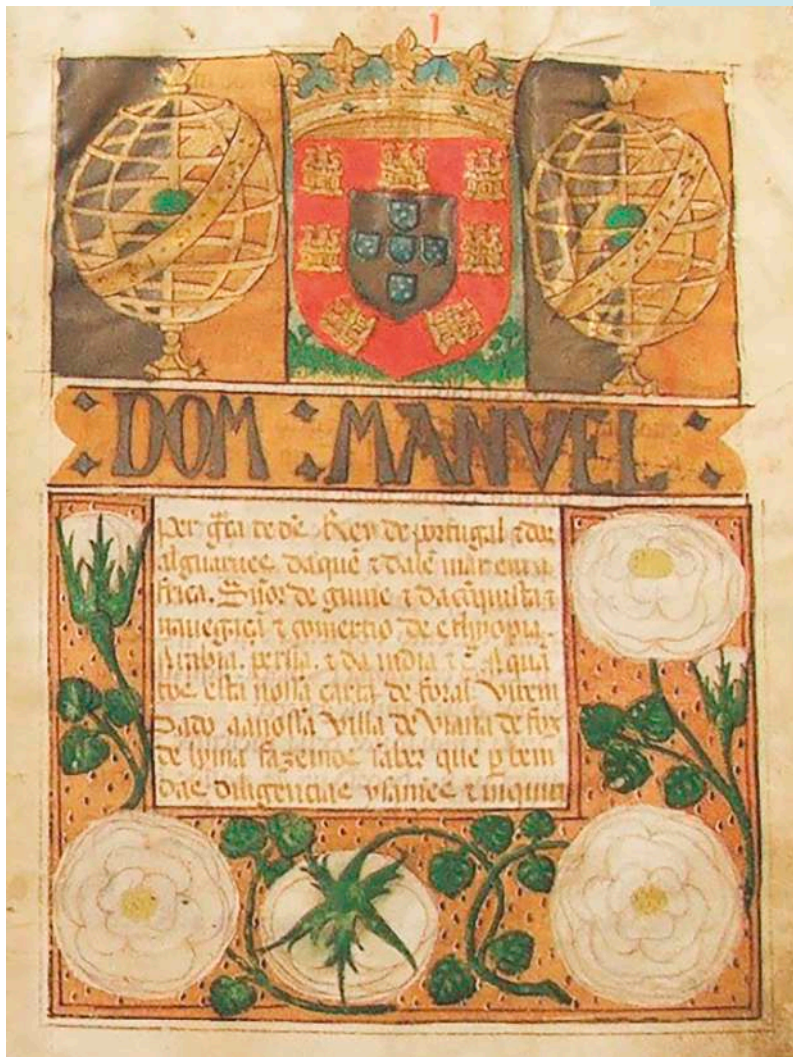 DOM MANVEL
per gr̃a de ds̃ Rey de portugal ⁊ dos
alguarues daquẽ ⁊ dalẽ mar em a
frica. Sñor de guine ⁊ da cõquista ⁊
nauegaçã ⁊ comercio de ethyopia.
Arabia. persia. ⁊ da india ⁊c̃ A quã
tos esta nossa carta de foral virem
Dado aa nossa villa de viana de foz
de lyma fazemos saber que p̱ bem
das diligencias ysames ⁊ inquiri